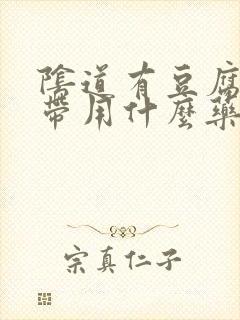 陰道有豆腐
帶用什麼藥
宗真仁子